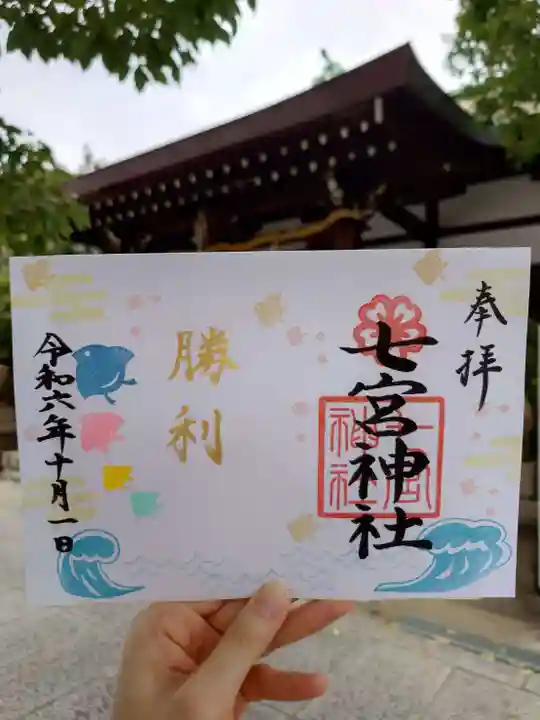 奉拝
七宮神社
七宮神社
勝利
令和六年十月一日